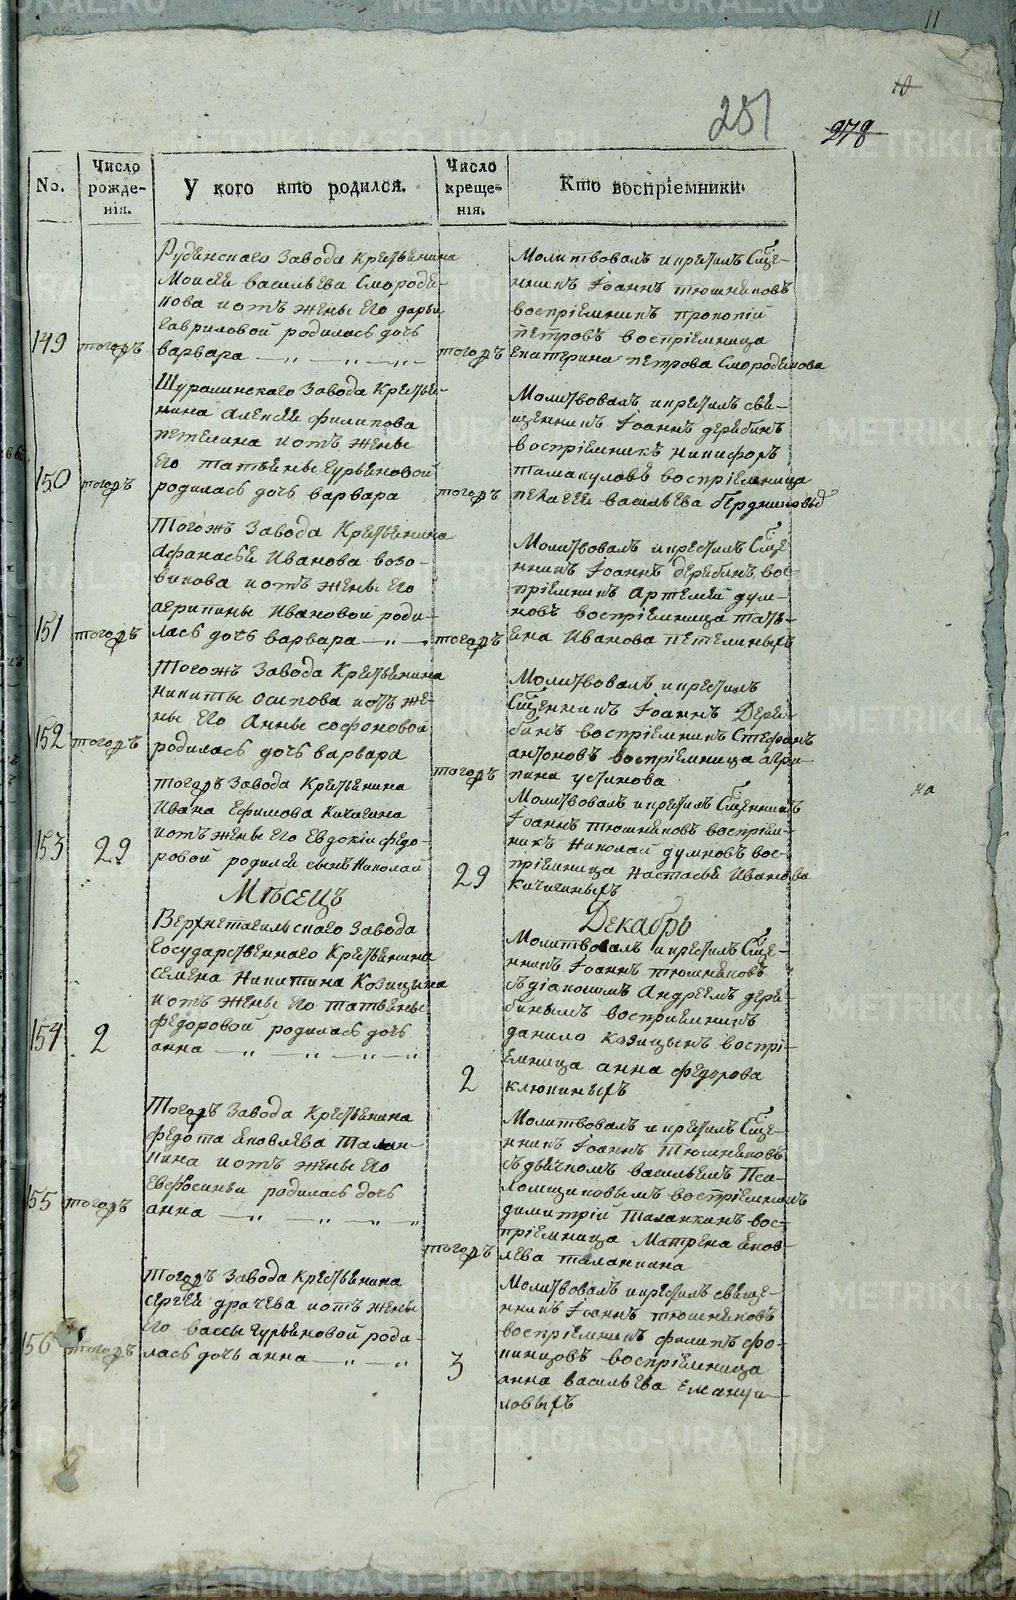 11
10
251
278
No.
Число рожденія.
У кого кто родился.
Число крещенія.
Кто воспріемники.
149
тогожъ
Рудянскаго завода крестьянина
Моисея васильева Смороди-
нова и отъ жены его дарьи
гавриловой родилась дочь
варвара
тогожъ
Молитвовалъ и крестилъ Сще-
нникъ Іоаннъ тюшняковъ
воспріемникъ прокопій
петровъ воспріемница
Екатерина петрова Смородинова
150
тогожъ
Шуралинскаго завода крестья-
нина Алексея филипова
петелина и отъ жены
его татьяны гурьяновой
родилась дочь варвара
тогожъ
Молитвовалъ и крестилъ свя-
щенникъ Іоаннъ дерябинъ
воспріемникъ никифоръ
воспріемница
пелагея васильева
151
тогожъ
Тогожъ завода крестьянина
Афанасья Иванова возо-
викова и отъ жены его
агрипины Ивановой роди-
лась дочь варвара
тогожъ
Молитвовалъ и крестилъ Сще
нникъ Іоаннъ дерябинъ вос-
пріемникъ Артемей дум-
новъ воспріемница тать-
яна Иванова петелиныхъ
152
тогожъ
Тогожъ завода крестьянина
Никиты осипова и отъ же-
ны его Анны софоновой
родилась дочь варвара
тогожъ
Молитвовалъ и крестилъ
Сщенникъ Іоаннъ Деря-
бинъ воспріемникъ Стефанъ
антоновъ воспріемница агри-
пина устинова
153
29
тогожъ завода крестьянина
Ивана Ефимова Кичигина
и отъ жены его Евдокіи федо-
ровой родился сынъ Николай
29
Молитвовалъ и крестилъ Сщенникъ
Іоаннъ тюшняковъ воспріем-
никъ Николай думновъ вос-
пріемница Настасья Иванова
Кичигиныхъ
на
Мѣсецъ
Декабрь
154
2
Верхнетагильскаго завода
Государственнаго крестьянина
семена Никитина Козицына
и отъ жены его татьяны
федоровой родилась дочь
анна
2
Молитвовалъ и крестилъ Сще-
нникъ Іоаннъ тюшняковъ
съ діакономъ Андреемъ деря-
бинымъ воспріемникъ
данило козицынъ воспрі-
емница анна федорова
клюкиныхъ
155
тогожъ
Тогожъ завода крестьянина
федота яковлева Талан-
кина и отъ жены его
Евфросиньи родилась дочь
анна
тогожъ
Молитвовалъ и крестилъ Сще-
нникъ Іоаннъ Тюшняковъ
съ дьячкомъ васильемъ Пса-
ломщиковымъ воспріемникъ
димитрій Таланкинъ вос-
пріемница Матрена яков-
лева таланкина
156
тогожъ
тогожъ завода крестьянина
сергея драчева и отъ жены
его вассы гурьяновой роди-
лась дочь анна
3
Молитвовалъ и крестилъ свяще-
нникъ Іоаннъ тюшняковъ
воспріемникъ филипъ
воспріемница
анна васильева емануи-
ловыхъ